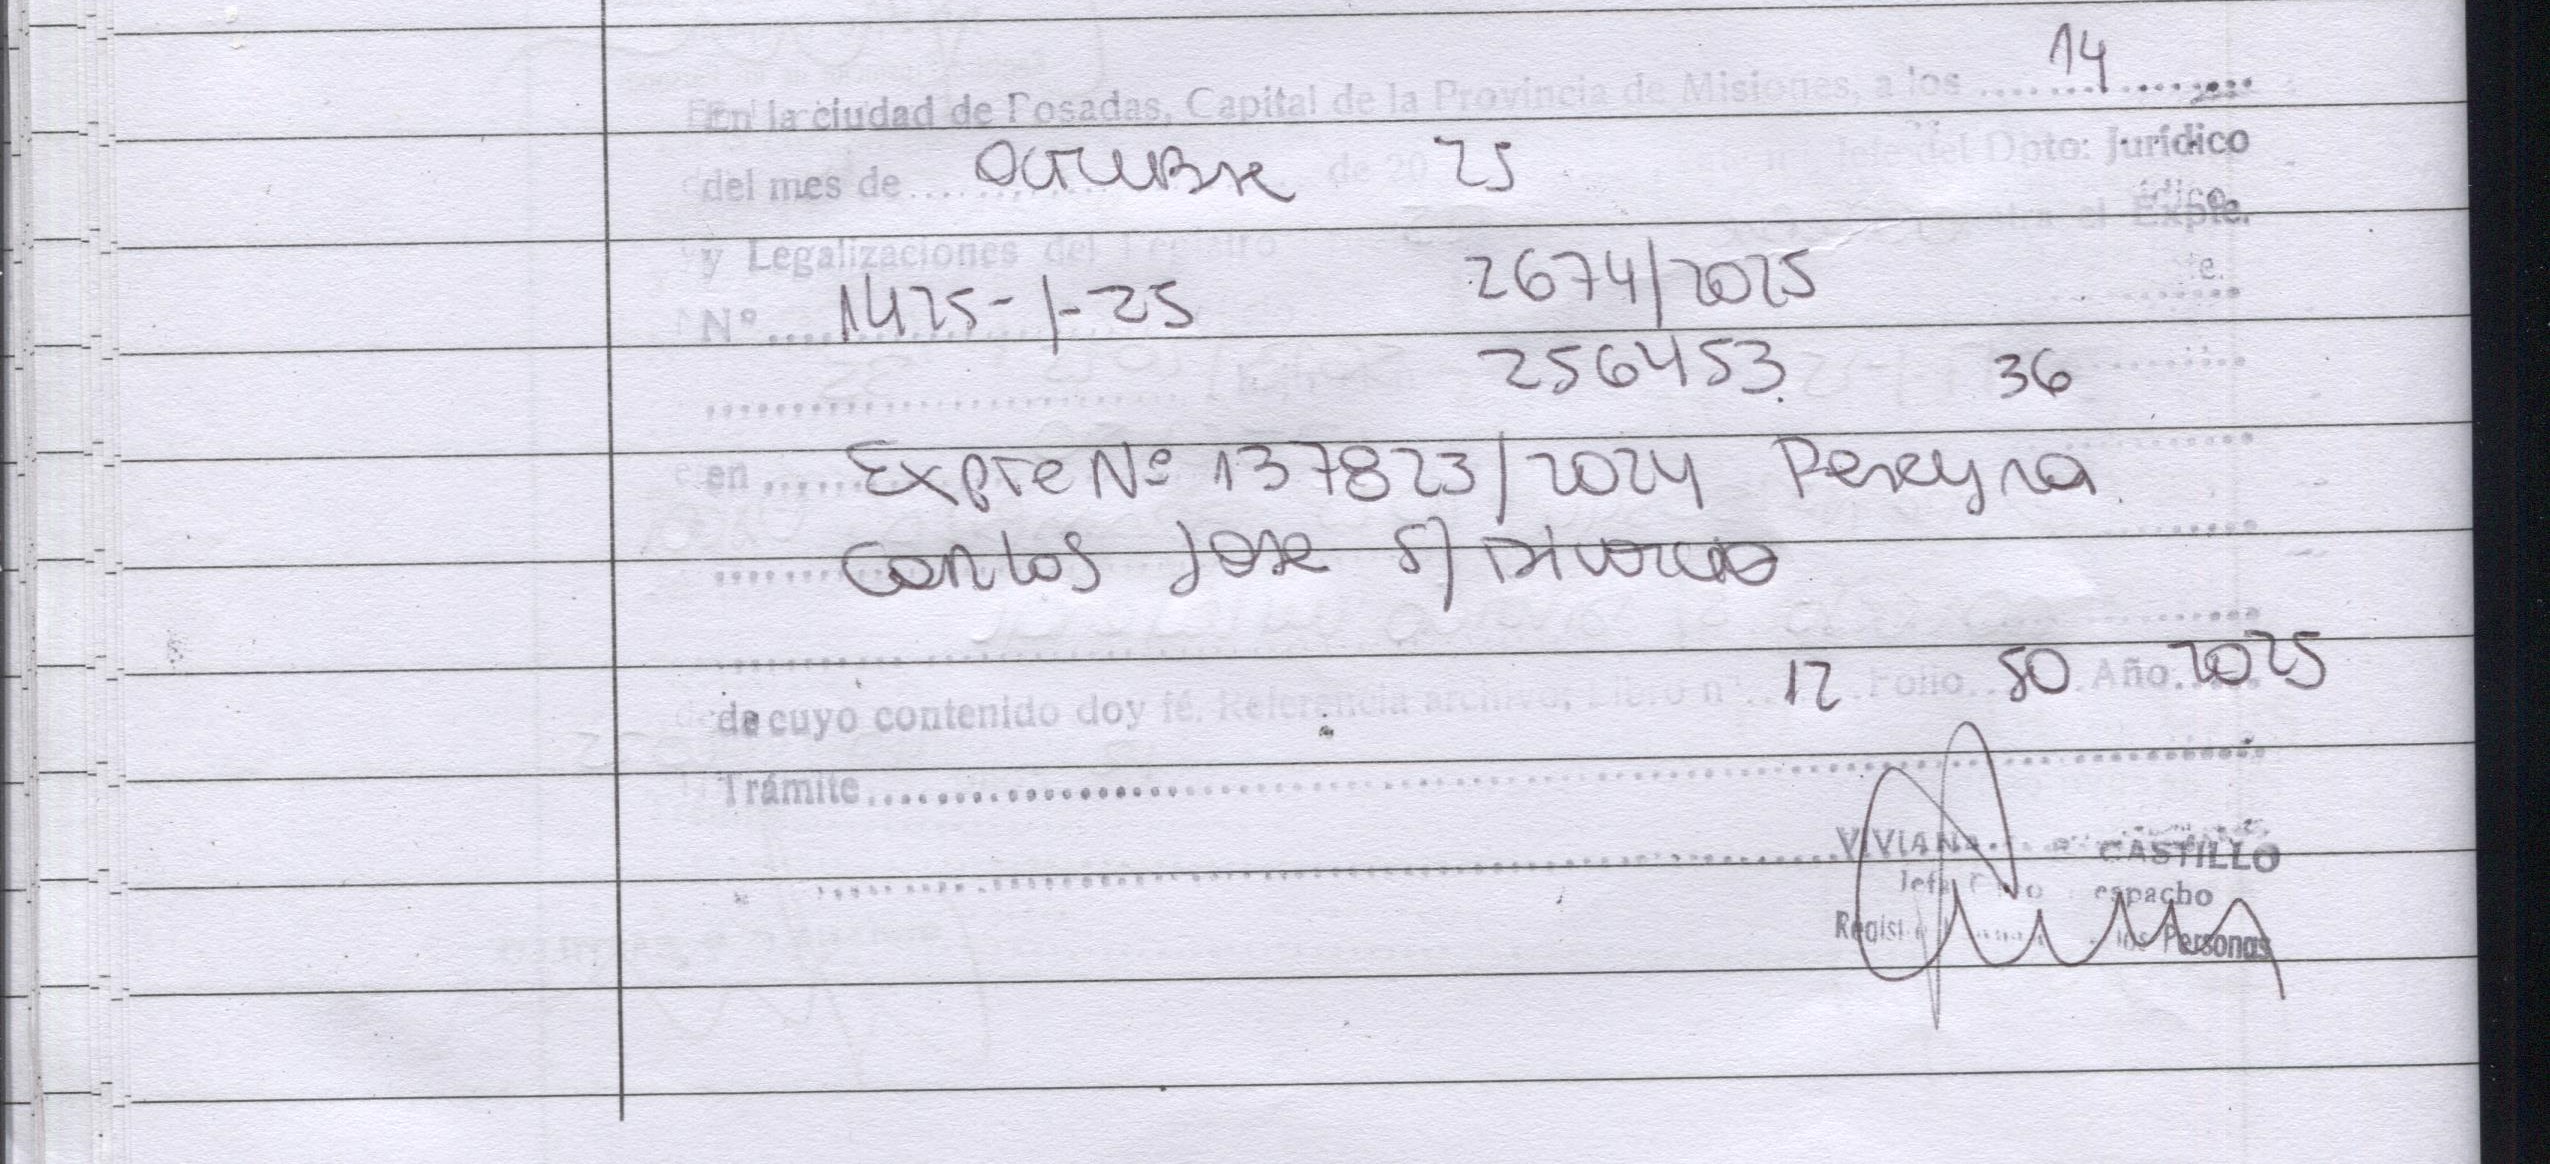 14
En la ciudad de Posadas, Capital de la Provincia de Misiones, a los
del mes de Octubre de 20 25 Jefe del Dpto: Jurídico
y Legalizaciones del Registro el Expte.
Nº 1425-/-25 2674/2025
256453 36
en Expte Nº 137823/2024 Pereyra
Carlos Jose S/ Divorcio
12 50 2025
de cuyo contenido doy fé. Referencia archivo, Libro nº Folio Año
Trámite
VIVIANA CASTILLO
Jefa Dpto espacho
Personas